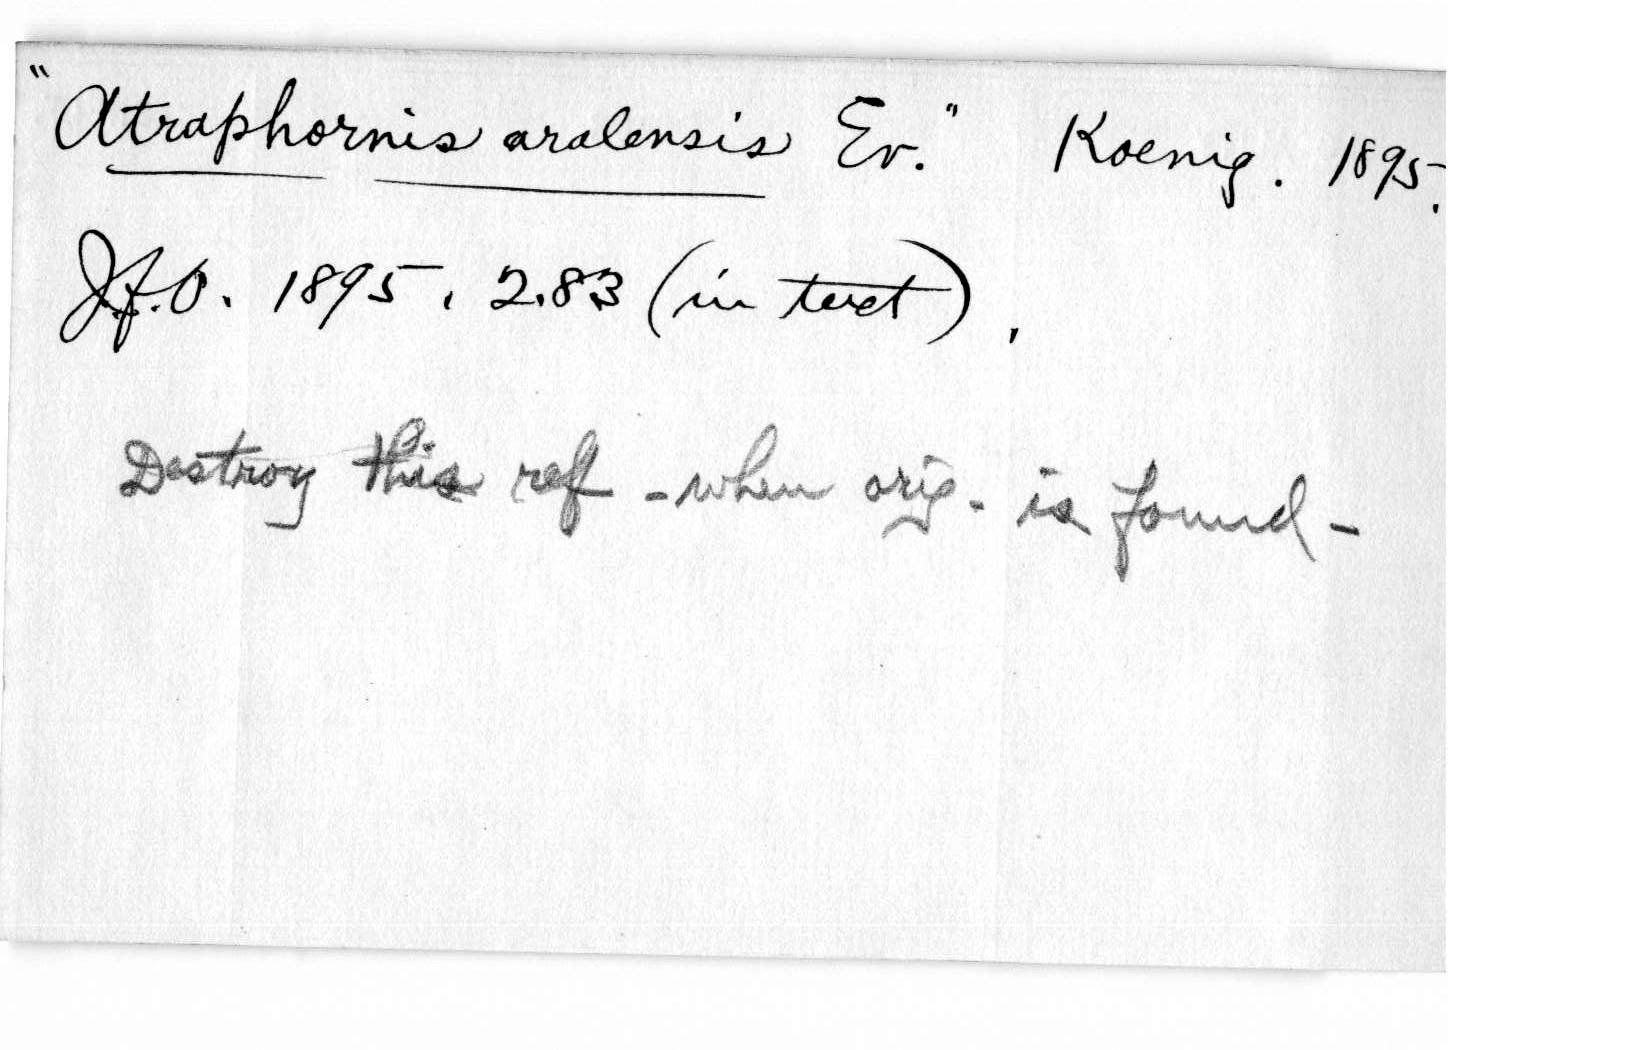 "Atraphornis aralensis Ev." Koenig. 1895.
J.f.O. 1895, 283 (in text).
Destroy this ref - when orig. is found -